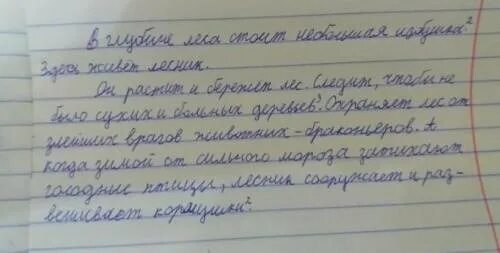 В глубине леса стоит небольшая избушка.²
Здесь живёт лесник.
Он растит и бережет лес. Следит, чтобы не
было сухих и больных деревьев³. Охраняет лес от
злейших врагов животных - браконьеров. А
когда зимой от сильного мороза затихают
голодные птицы, лесник сооружает и раз-
вешивает кормушки².